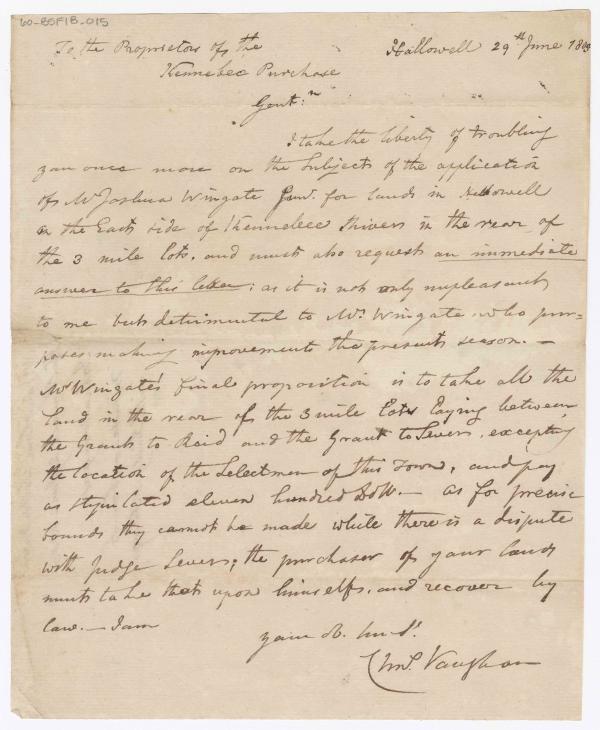 60-BSF1B-015
To the Proprietors of the
Hallowell 29th June 180
Kennebec Purchase
Gent:n
I take the liberty of troubling
you once more on the Subject of the application
of Mr Joshua Wingate Junr. for lands in Hallowell
on the East side of Kennebec Rivers in the rear of
the 3 mile lots, and must also request an immediate
answer to this letter; as it is not only unpleasant
to me but detrimental to Mr. Wingate who pur-
poses making improvements the present season. —
Mr Wingate's final proposition is to take all the
land in the rear of the 3 mile Lots laying between
the Grants to Reid and the Grant to Severs, excepting
the location of the Selectmen of this Town, and pay
as stipulated eleven hundred Doll. — as for precise
bounds they cannot be made while there is a dispute
with Judge Severs; the purchaser of your lands
must take that upon himself, and recover by
law. — I am
your Ob. hm. St.
Chas. Vaughan